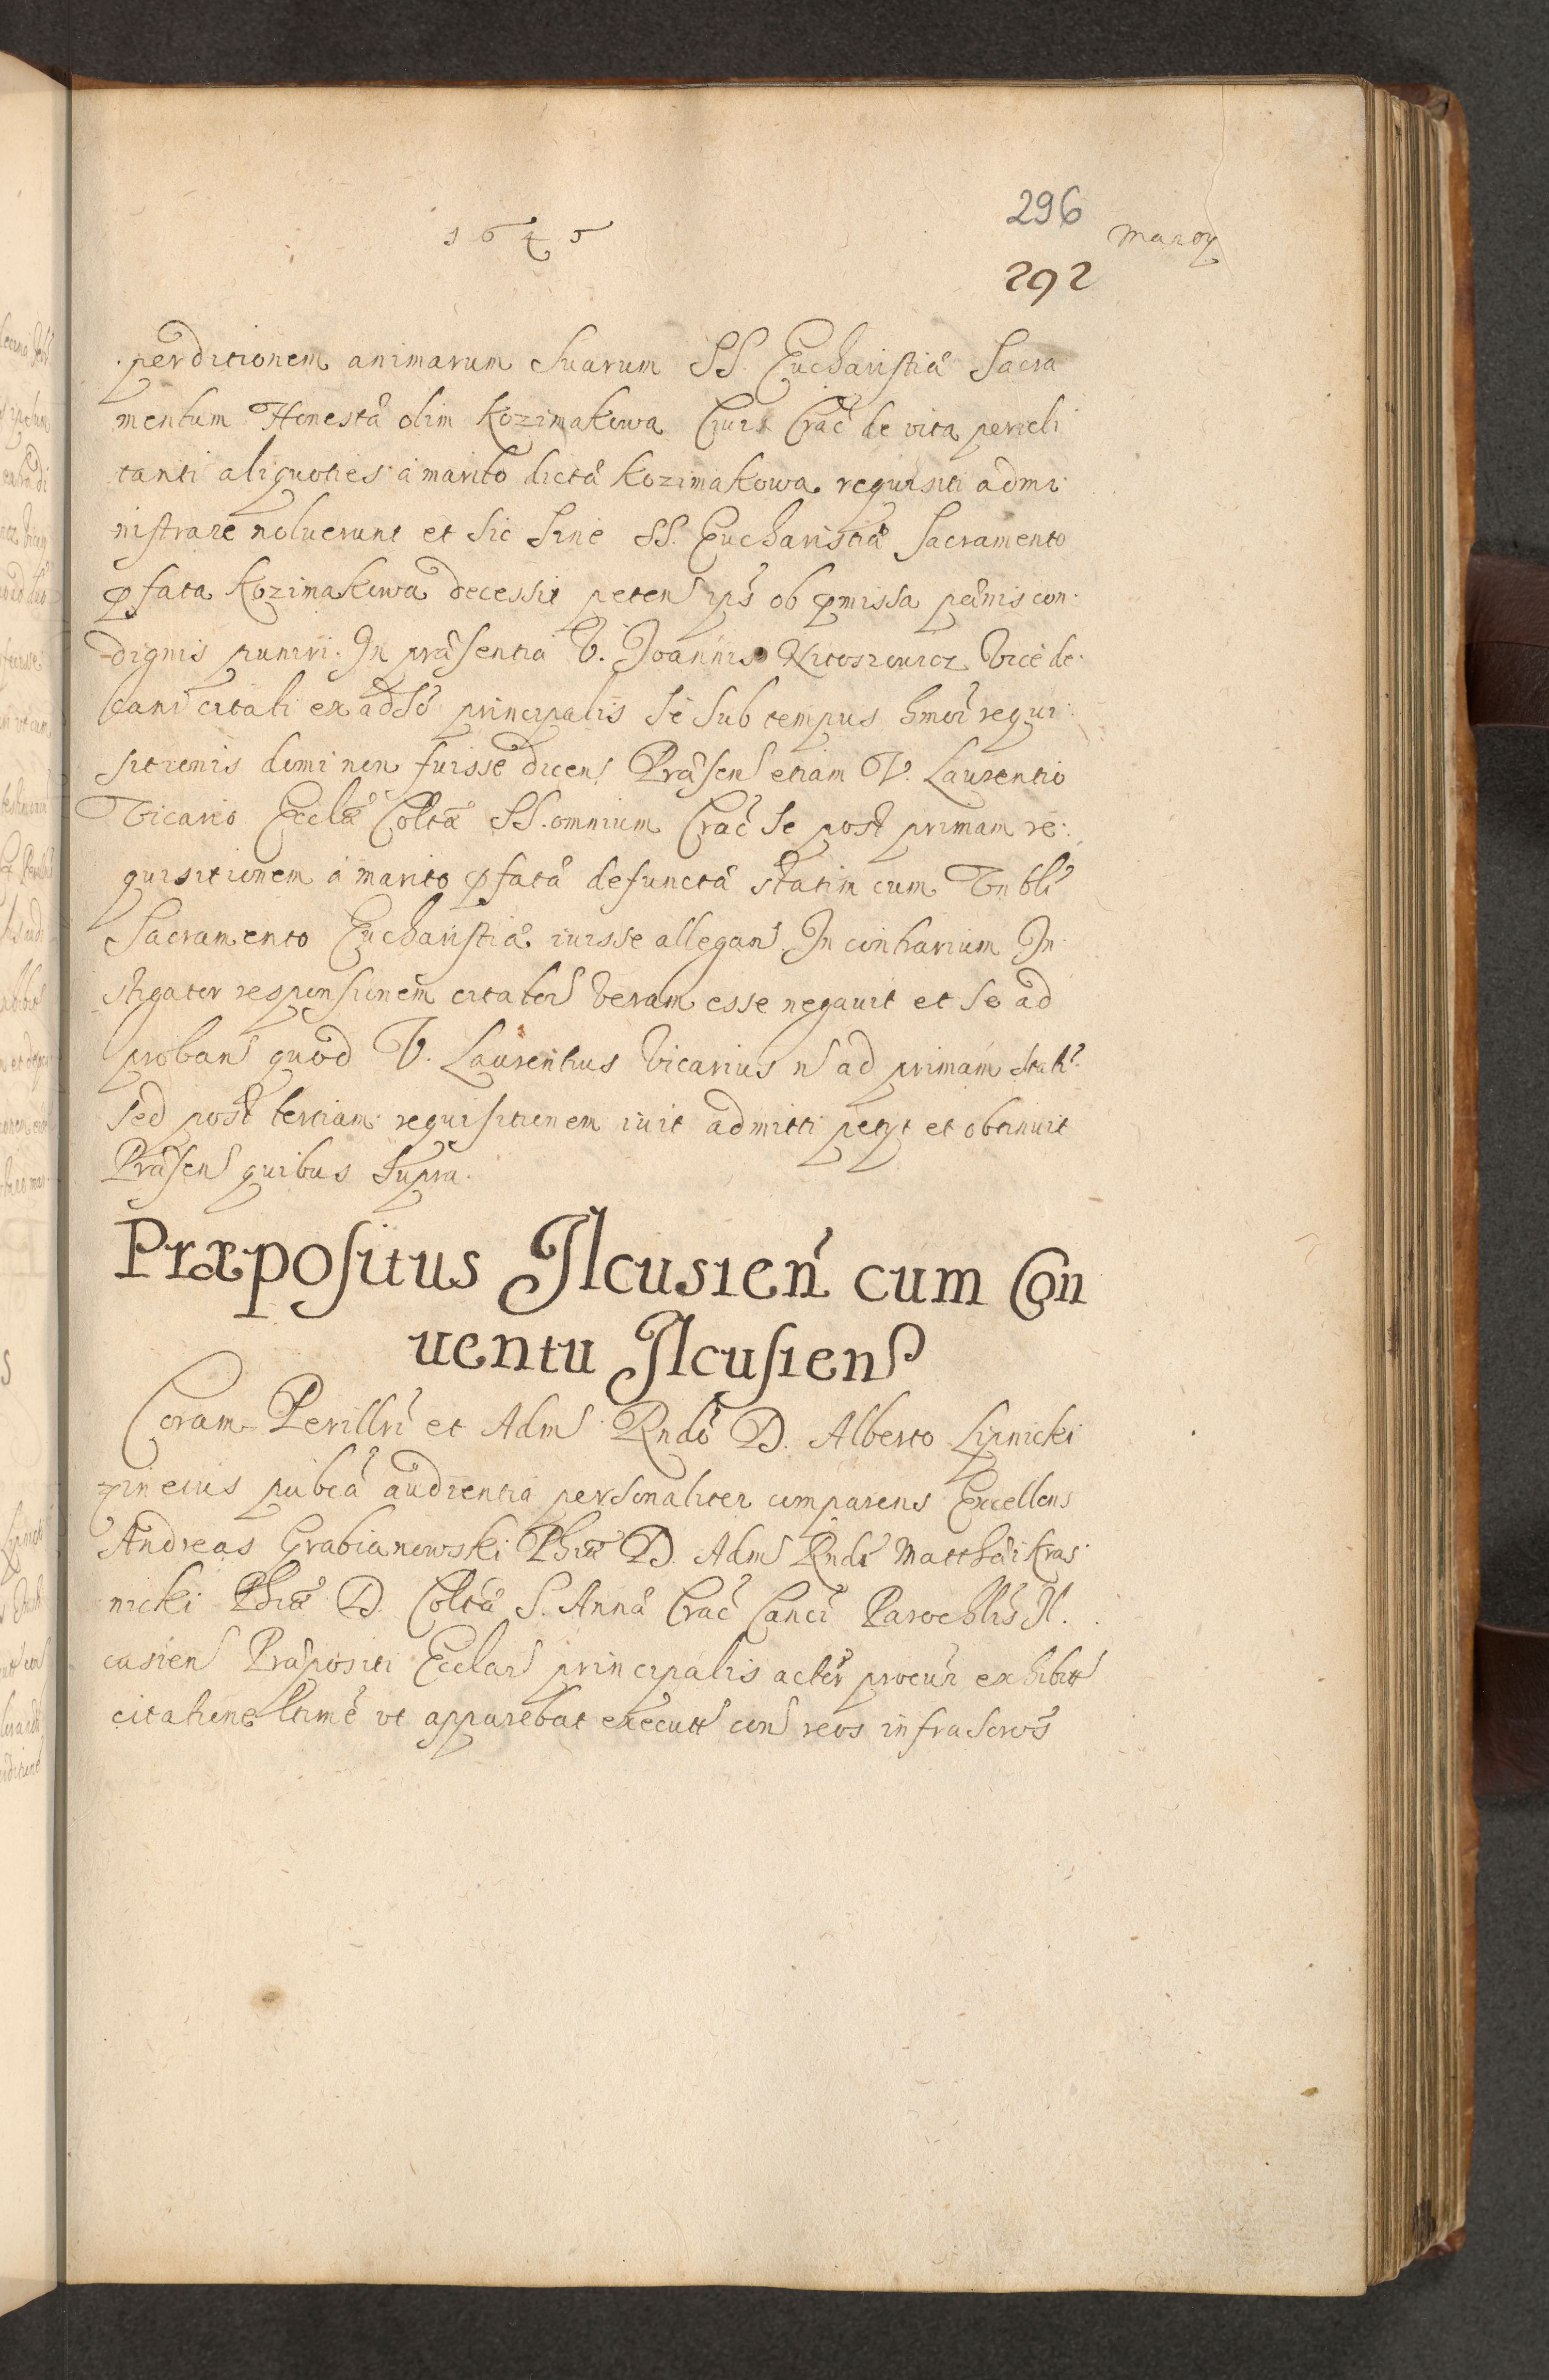 296
1645 Marty
292
perditionem animarum suarum SS. Eucharistiæ Sacra
mentum Honestæ olim Kozimakowa Ciuis Crac̃ de vita pericli
tanti aliquoties à marito dictæ Kozimakowa requisiti admi
nistrare noluerunt et sic sine SS. Eucharistiæ Sacramento
p̃fata Kozimakowa decessit peten̄ ip̃s ob p̃missa pænis con
dignis puniri. In præsentia V. Joannis Vice de
cani citati ex adṽso principalis se sub tempus hmõi requi
sitionis domi non fuisse dicen̄ Præsen̄ etiam V. Laurentio
Vicario Eccl̃æ Col̃tæ SS. omnium Crac̃ se post primam re
quisitionem à marito p̃fatæ defunctæ statim cum Vn̄bli
Sacramento Eucharistiæ iuisse allegan̄. In contrarium In
stigator responsionem citator̄ veram esse negauit et se ad
proban̄ quod V. Laurentius Vicarius n̄ ad primam stati᷈
sed post tertiam requisitionem iuit admitti petyt et obtinuit
Præsen̄ quibus supra.
Præpositus Ilcusien̄ cum Con
uentu Ilcusien̄
Coram Perillr̃i et Adm̄ Rndõ D. Alberto Lipnicki
in eius pub̃ca audientia personaliter comparens Excellens
Andreas Grabianowski Phiæ D. Adm̄ Rndi Matthæi Kras
nicki Phiæ D. Col̃tæ S. Annæ Crac̃ Canc̃i Paroch̃lis Il
cusien̄ Præpositi Ecclar̄ principalis actor̃ procur̃ exhibitt̄
citatione ltimẽ vt apparebat executt̄ con̄ reos infrascrõs